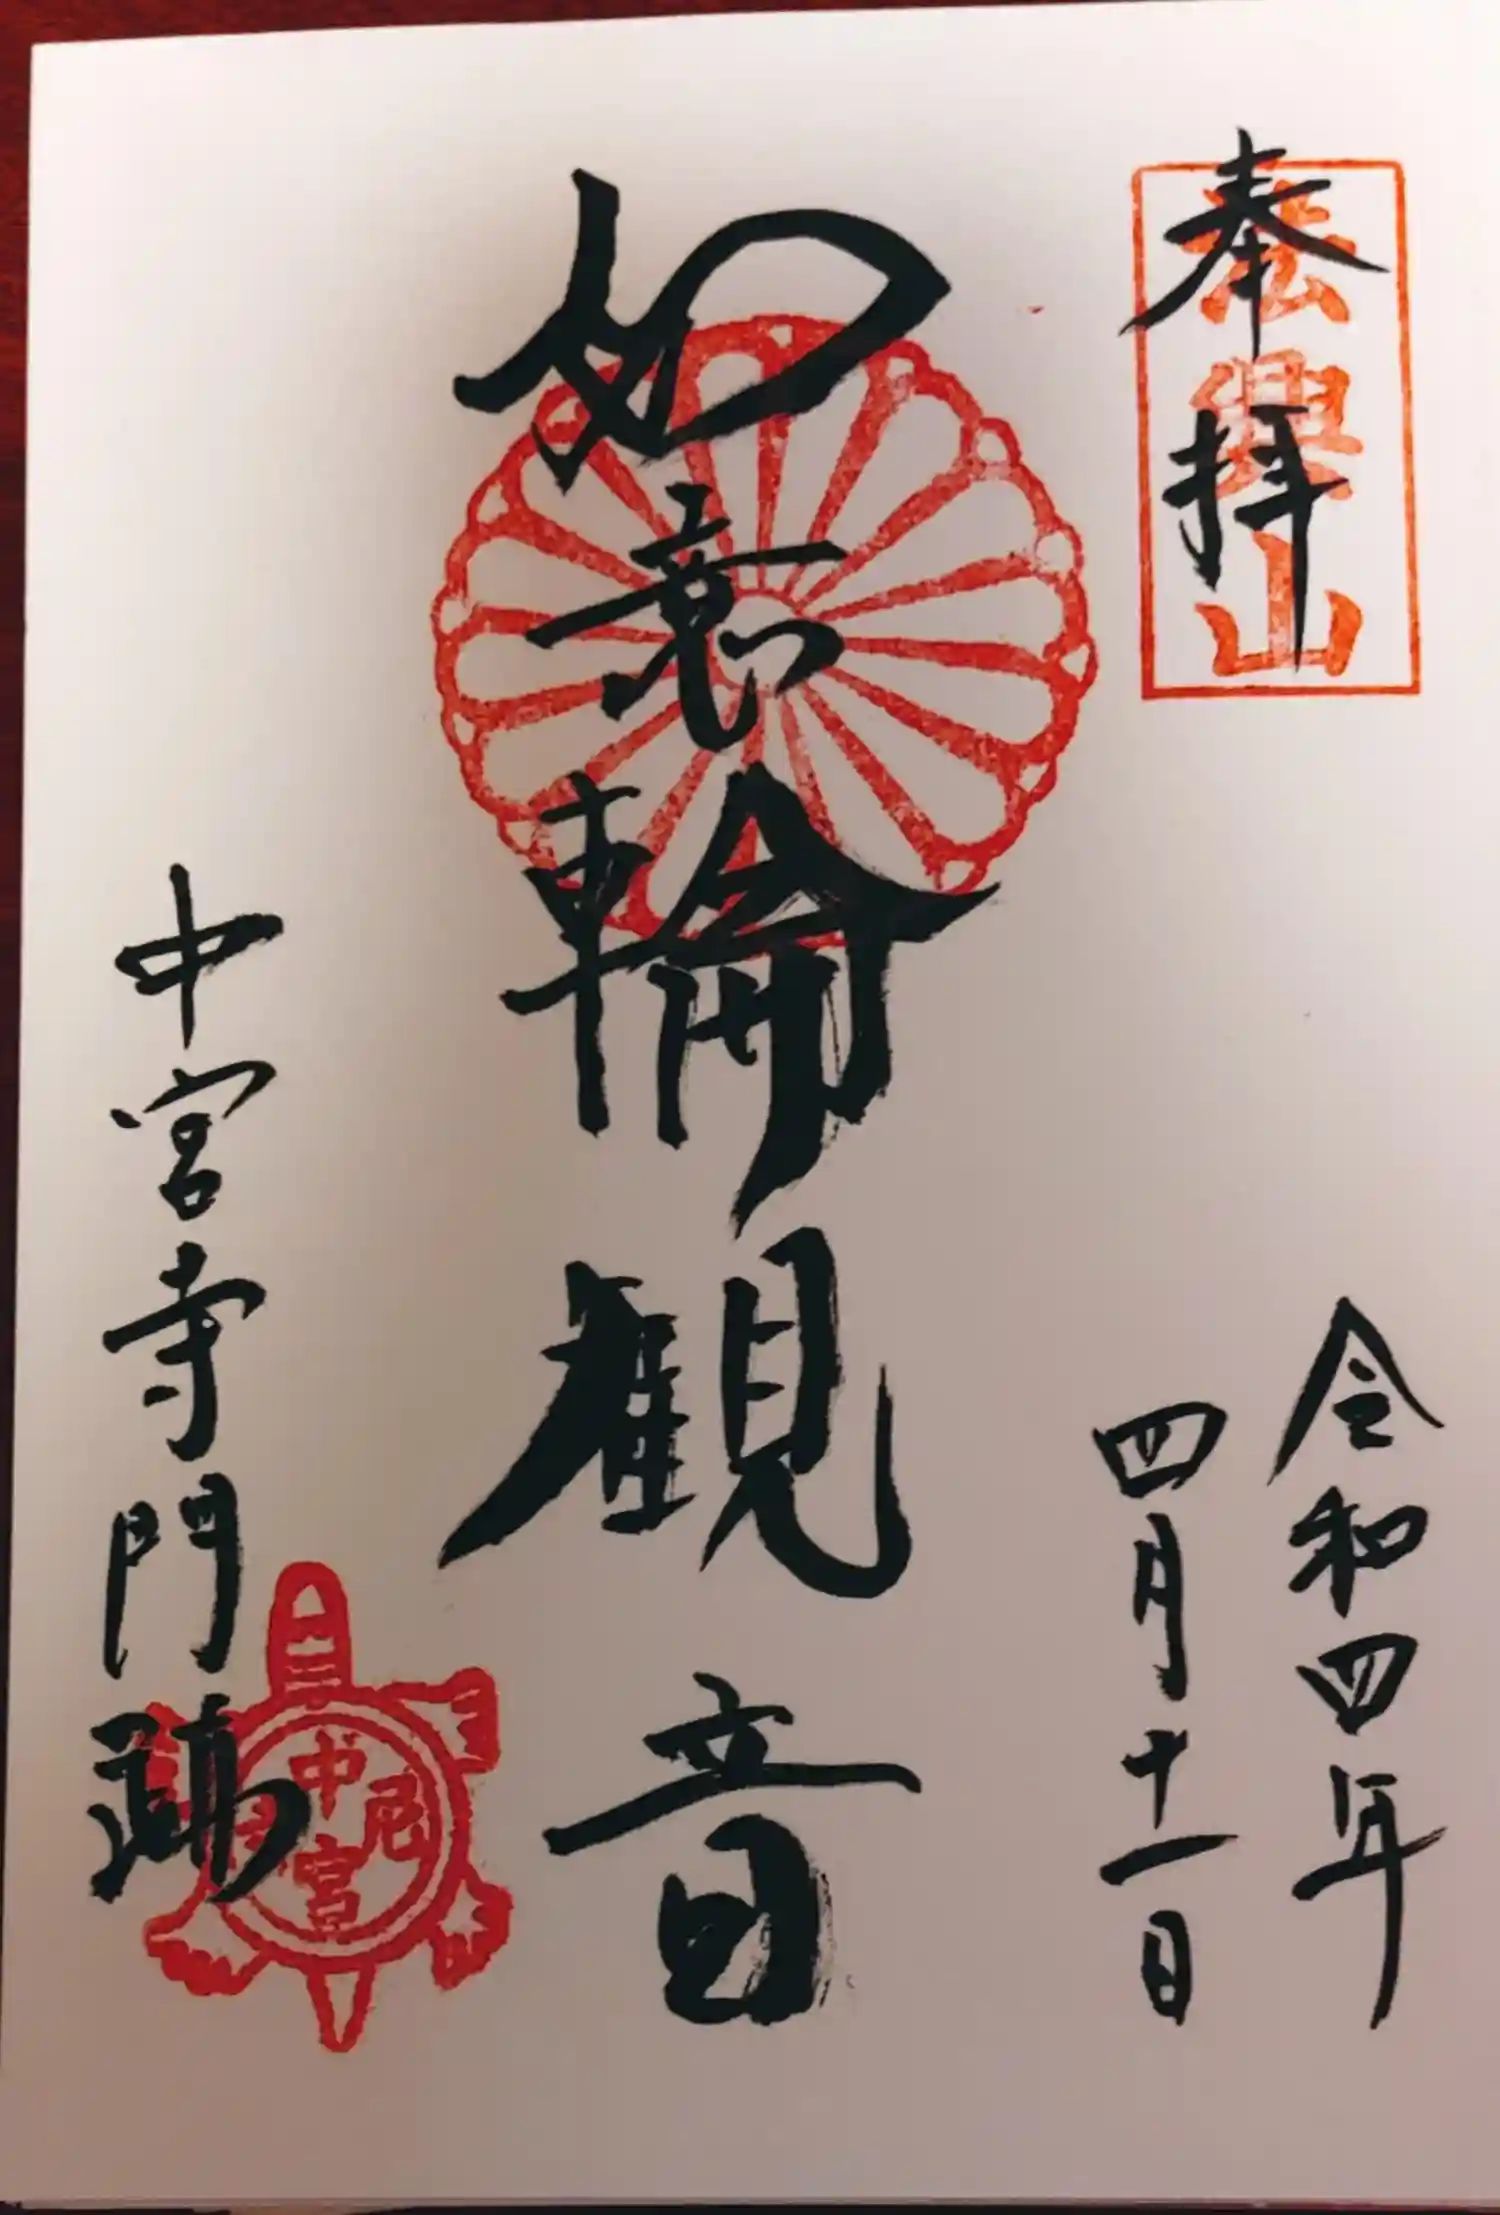 奉拝
法興山
令和四年
四月十一日
如意輪観音
中宮寺門跡
中宮尼